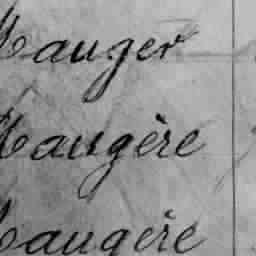 Mauger
Maugère
Maugère